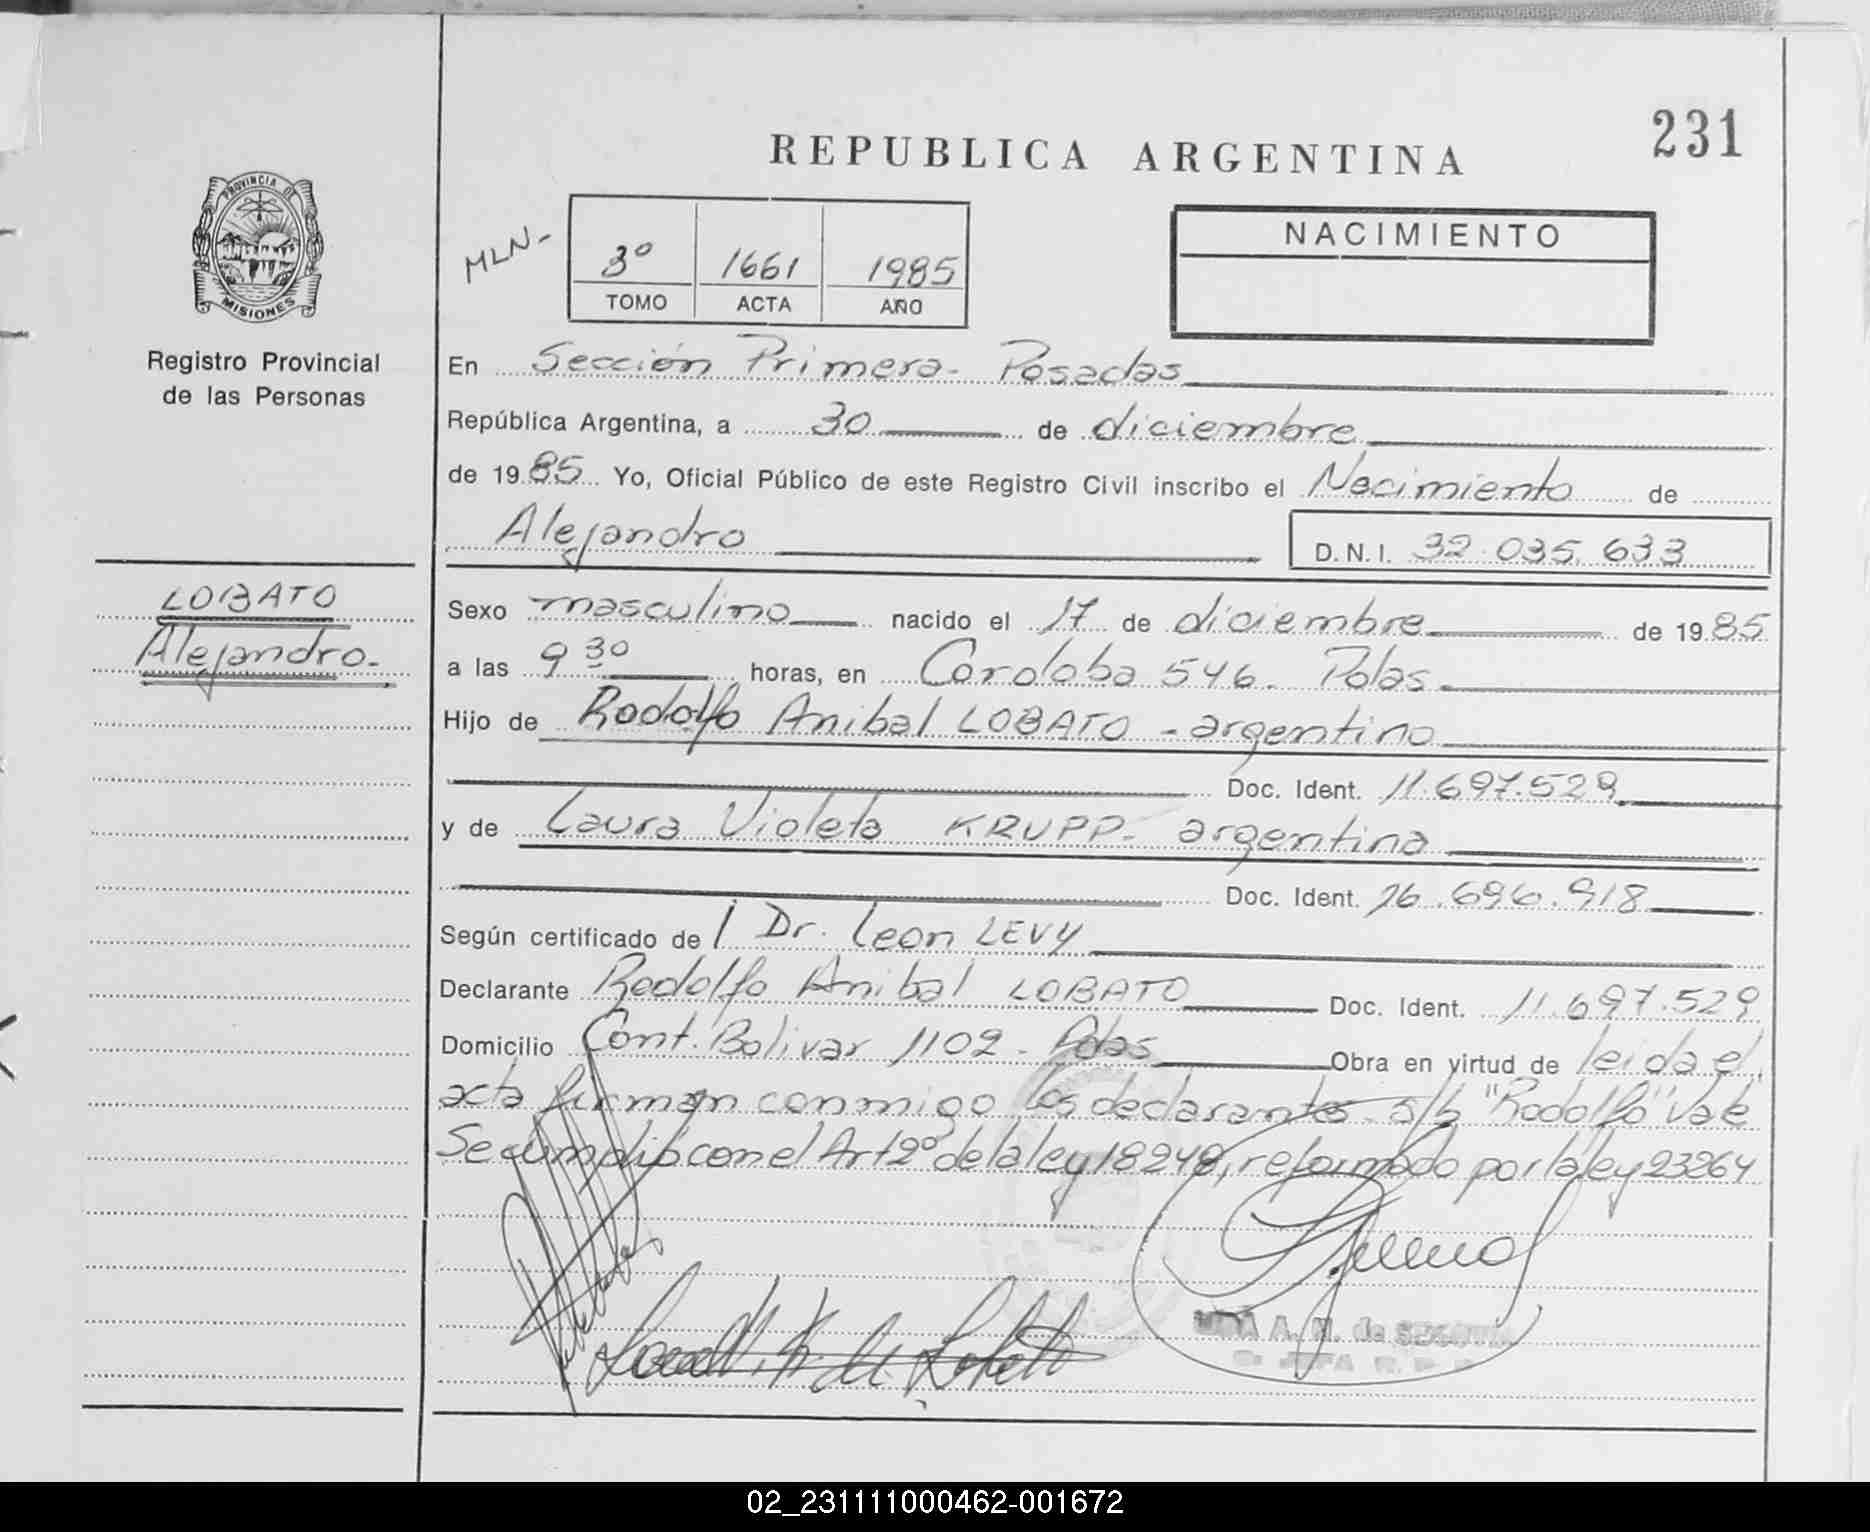 231
REPUBLICA ARGENTINA
PROVINCIA DE
MISIONES
Registro Provincial
de las Personas
MLN-
3º 1661 1985
TOMO ACTA AÑO
NACIMIENTO
En Sección Primera - Posadas
República Argentina, a 30 de diciembre
de 1985 Yo, Oficial Público de este Registro Civil inscribo el Nacimiento de
Alejandro D.N.I. 32.035.633
LOBATO
Alejandro.-
Sexo masculino nacido el 17 de diciembre de 1985
a las 9 30 horas, en Cordoba 546. Pdas.
Hijo de Rodolfo Anibal LOBATO - argentino
Doc. Ident. 11.697.529
y de Laura Violeta KRUPP - argentina
Doc. Ident. 16.696.918
Según certificado de Dr. Leon LEVY
Declarante Rodolfo Anibal LOBATO Doc. Ident. 11.697.529
Domicilio Cont. Bolivar 1102 - Pdas Obra en virtud de leida el
acta firman conmigo los declarantes - s/b "Rodolfo" Vale
Se cumplió con el Art 2º de la ley 18248, reformado por la ley 23264
A. M. de
JEFA R. P.
02_231111000462-001672